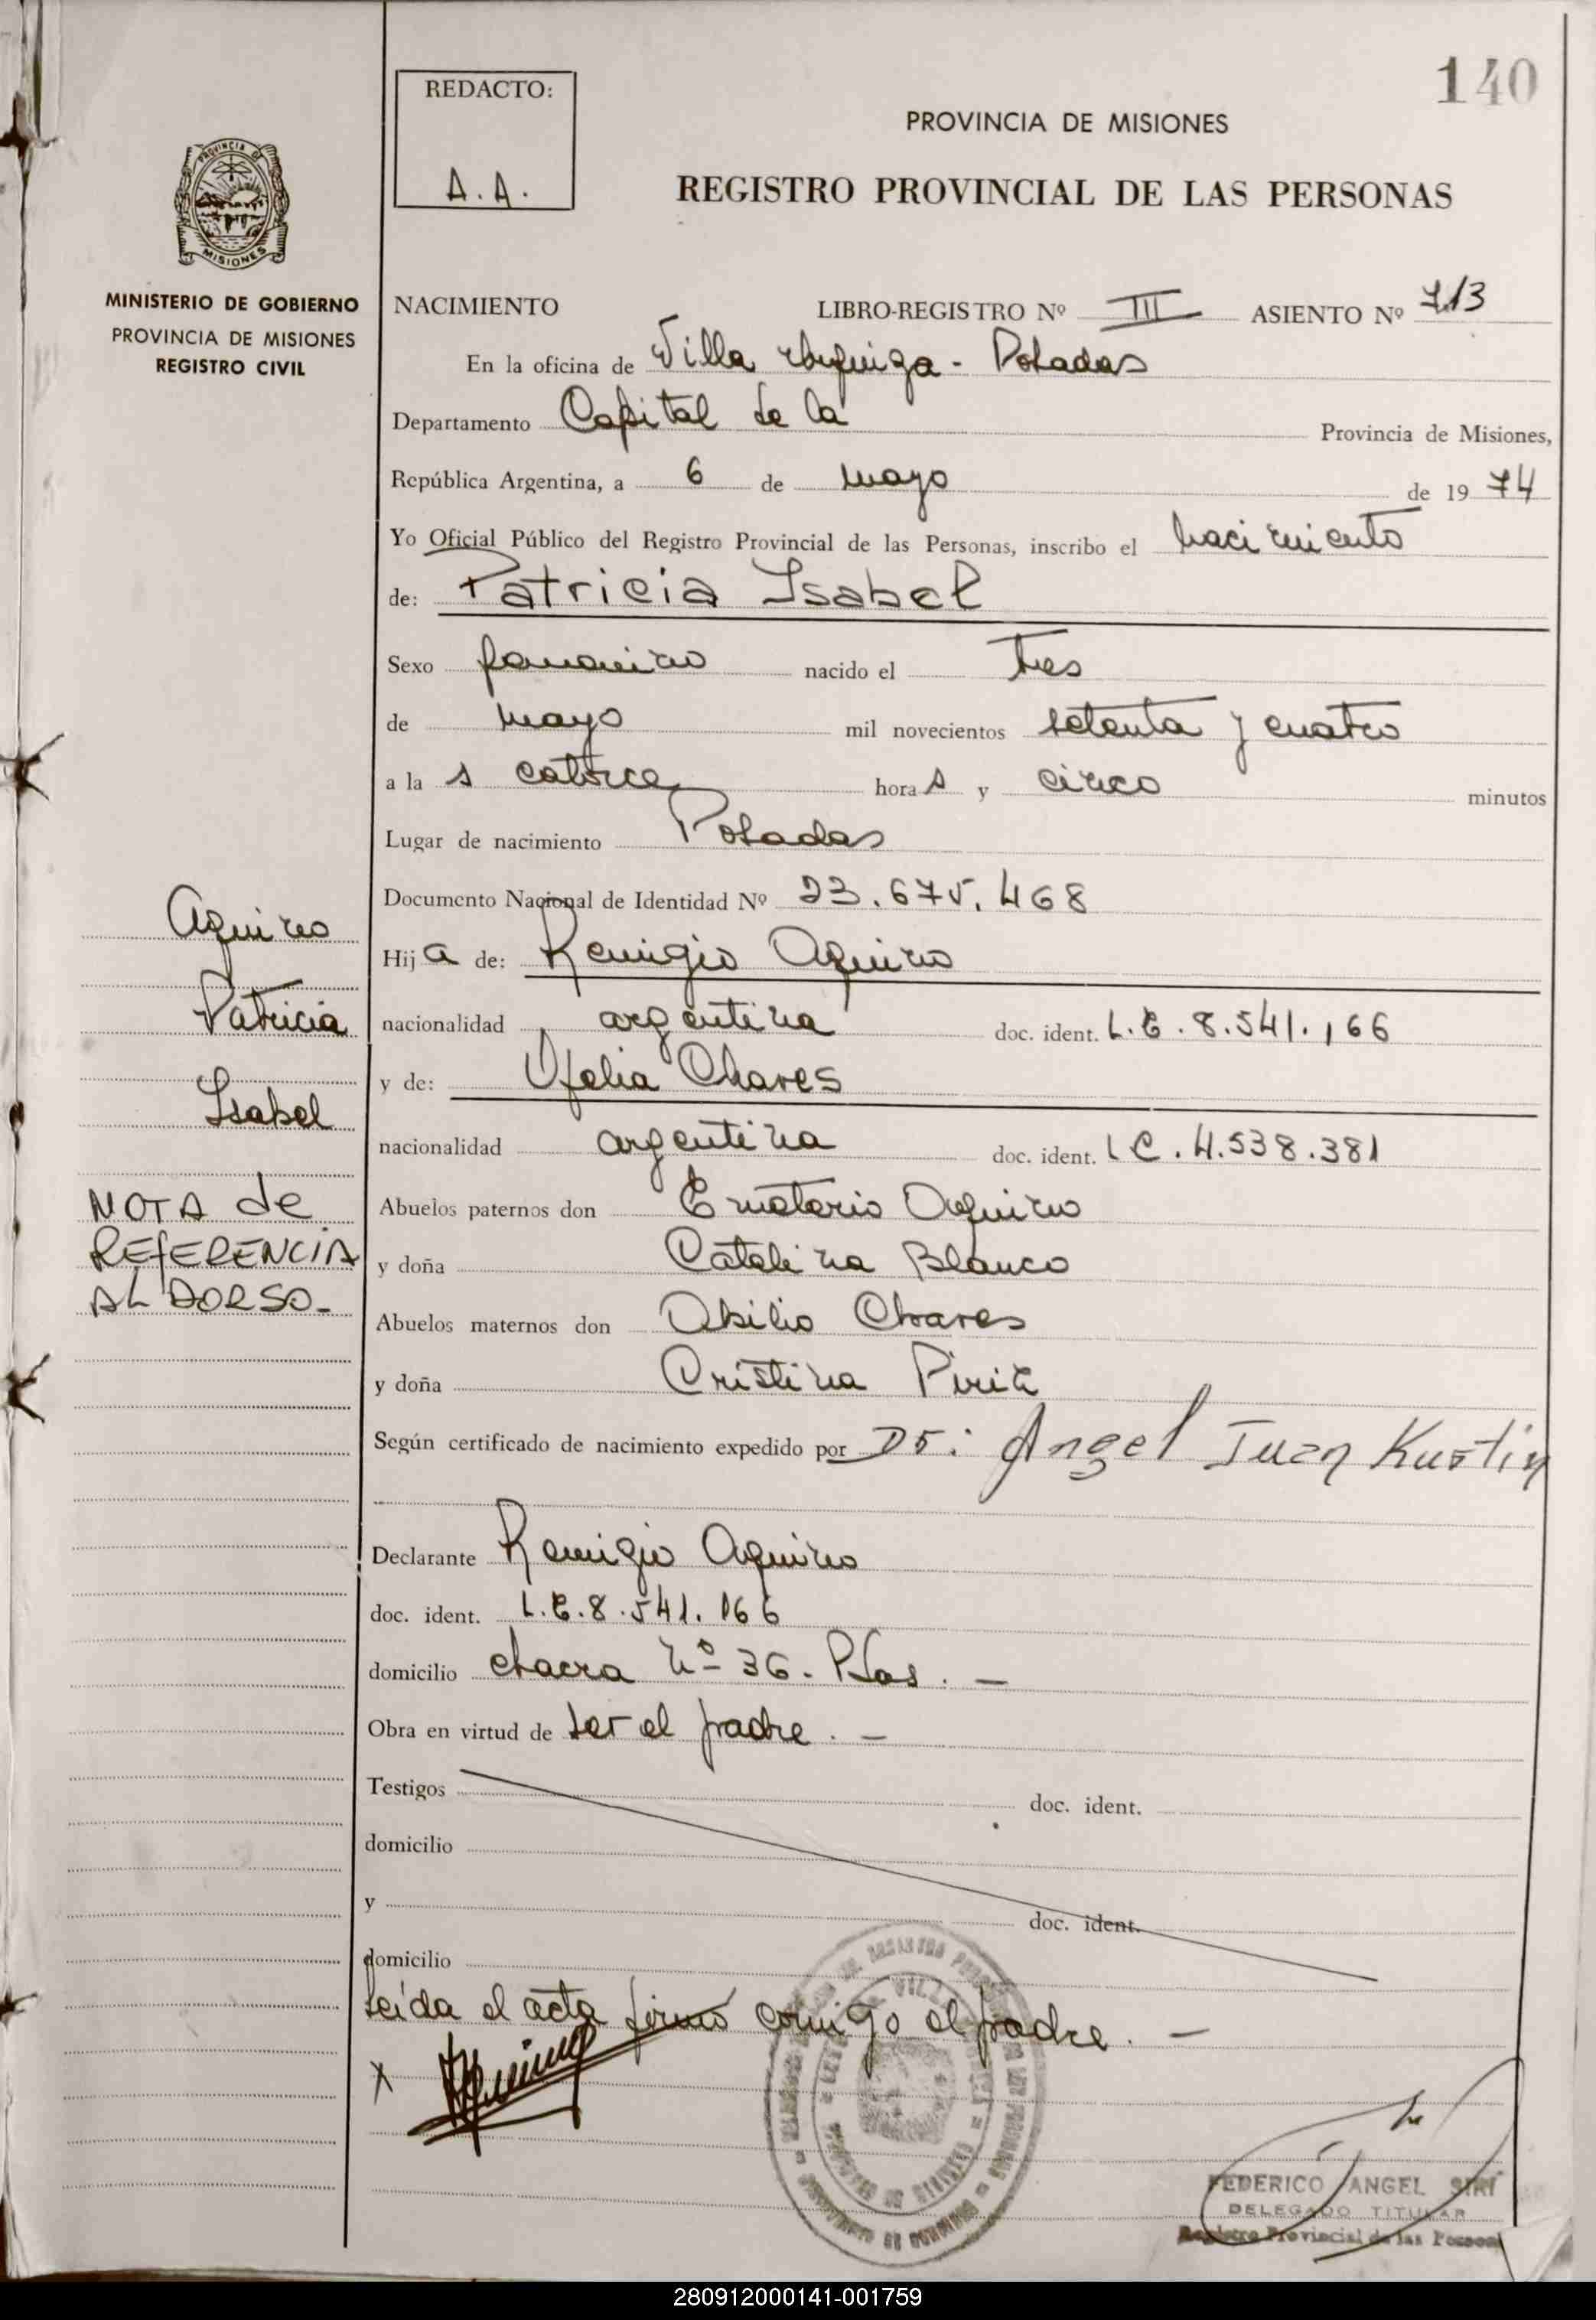 140
REDACTO:
A.A.
PROVINCIA DE MISIONES
REGISTRO PROVINCIAL DE LAS PERSONAS
PROVINCIA DE
MISIONES
MINISTERIO DE GOBIERNO
PROVINCIA DE MISIONES
REGISTRO CIVIL
NACIMIENTO LIBRO-REGISTRO Nº III ASIENTO Nº 713
En la oficina de Villa Urquiza - Posadas
Departamento Capital de la Provincia de Misiones,
República Argentina, a 6 de mayo de 1974
Yo Oficial Público del Registro Provincial de las Personas, inscribo el nacimiento
de: Patricia Isabel
Sexo femenino nacido el tres
de mayo mil novecientos setenta y cuatro
a la s catorce hora s y cinco minutos
Lugar de nacimiento Posadas
Documento Nacional de Identidad Nº 23.675.468
Hij a de: Remigio Aquino
nacionalidad argentina doc. ident. L.E. 8.541.166
y de: Ofelia Chares
nacionalidad argentina doc. ident. L C. 4.538.381
Abuelos paternos don Emeterio Aquino
y doña Catalina Blanco
Abuelos maternos don Abilio Chares
y doña Cristina Piriz
Según certificado de nacimiento expedido por Dr: Angel Juan Kustin
Declarante Remigio Aquino
doc. ident. L.E. 8.541.166
domicilio chacra Nº 36. Pdas. —
Obra en virtud de ser el padre. —
Testigos doc. ident.
domicilio
y doc. ident.
domicilio
Leída el acta firmó comigo el padre. —
X
Aquino
Patricia
Isabel
NOTA de
REFERENCIA
AL DORSO-
FEDERICO ANGEL SIRI
DELEGADO TITULAR
Registro Provincial de las Person
280912000141-001759